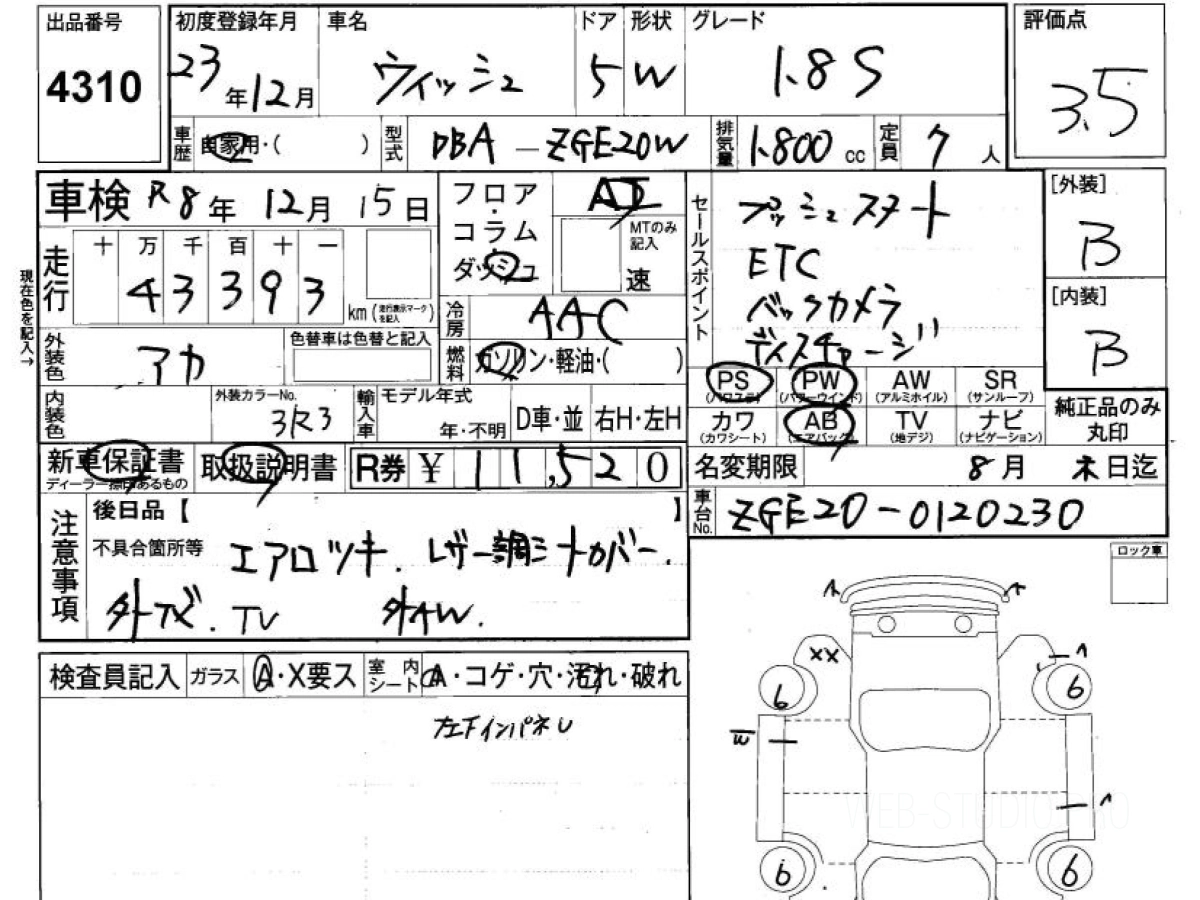 出品番号 初度登録年月 車名 ドア 形状 グレード 評価点
4310 23年12月 ウィッシュ 5 W 1.8S 3.5
車歴 自家用・( ) 型式 DBA-ZGE20W 排気量 1.800cc 定員 7人
車検 R8年12月15日
フロア・コラム・ダッシュ
MTのみ記入
速
セールスポイント
プッシュスタート
ETC
バックカメラ
ディスチャージ
[外装]
B
[内装]
B
走行 十万千百十一
43393 km (走行表示マークを記入)
現在色を記入→
冷房 AAC
外装色 アカ 色替車は色替と記入
燃料 ガソリン・軽油・( )
PS (パワステ) PW (パワーウインド) AW (アルミホイル) SR (サンルーフ)
カワ (カワシート) AB (エアバック) TV (地デジ) ナビ (ナビゲーション)
純正品のみ丸印
内装色 外装カラーNo. 3R3 輸入車 モデル年式 年・不明 D車・並 右H・左H
新車保証書 取扱説明書 R券 ¥ 11,520
ディーラー捺印あるもの
名変期限 8月末日迄
車台No. ZGE20-0120230
注意事項
後日品【 】
不具合箇所等 エアロツキ. レザー調シートカバー.
外ナビ. TV 外AW.
ロック車
検査員記入 ガラス A・X要ス 室内シート A・コゲ・穴・汚れ・破れ
左下インパネU
XX
6
6
6
6
WEB-STUDIO PRO